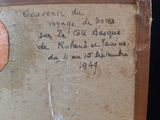 Souvenir du
voyage de noces
sur la Côte Basque
de Roland et Janine
du 4 au 15 Septembre
1949